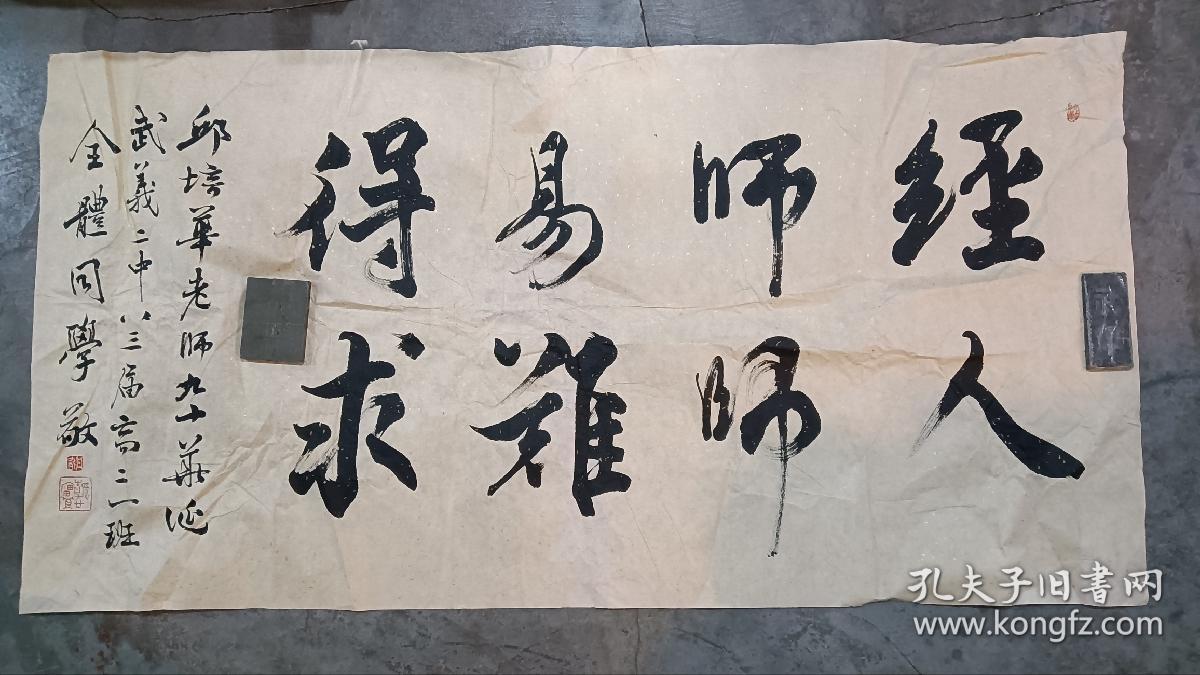 經人
師師
易難
得求
邱培華老師九十華誕
武義二中八三届高二一班
全體同學敬
孔夫子旧書网
www.kongfz.com